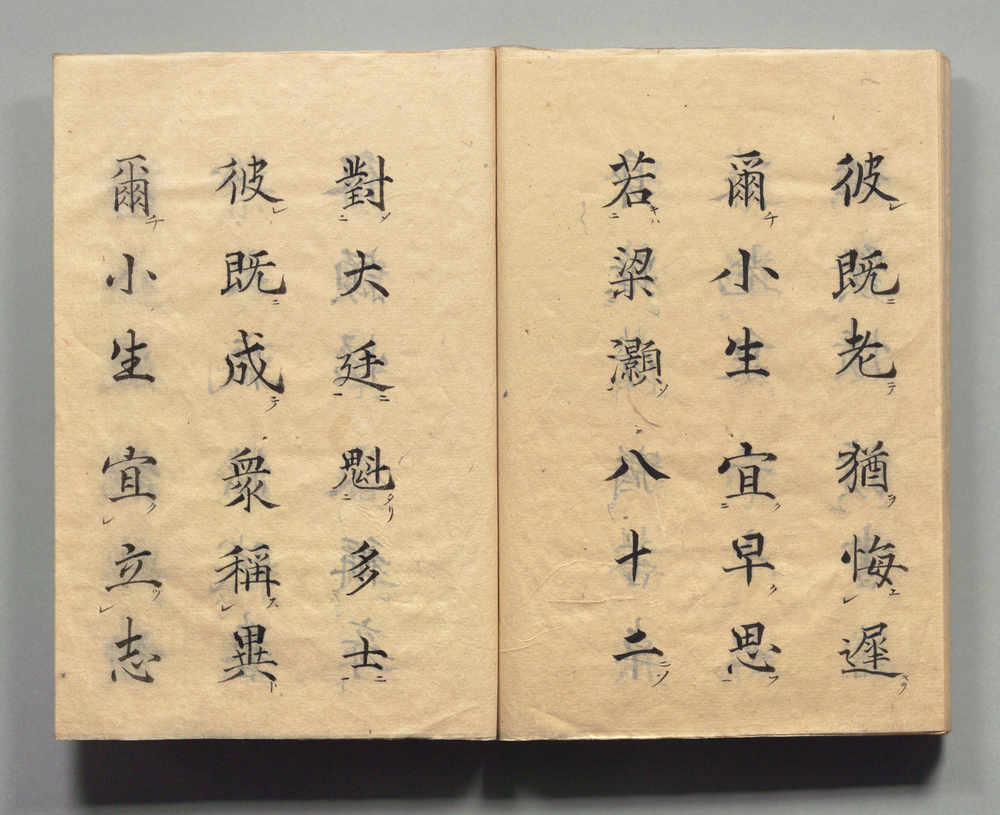 彼既老猶悔遲
爾小生宜早思
若梁灝八十二
對大廷魁多士
彼既成衆稱異
爾小生宜立志